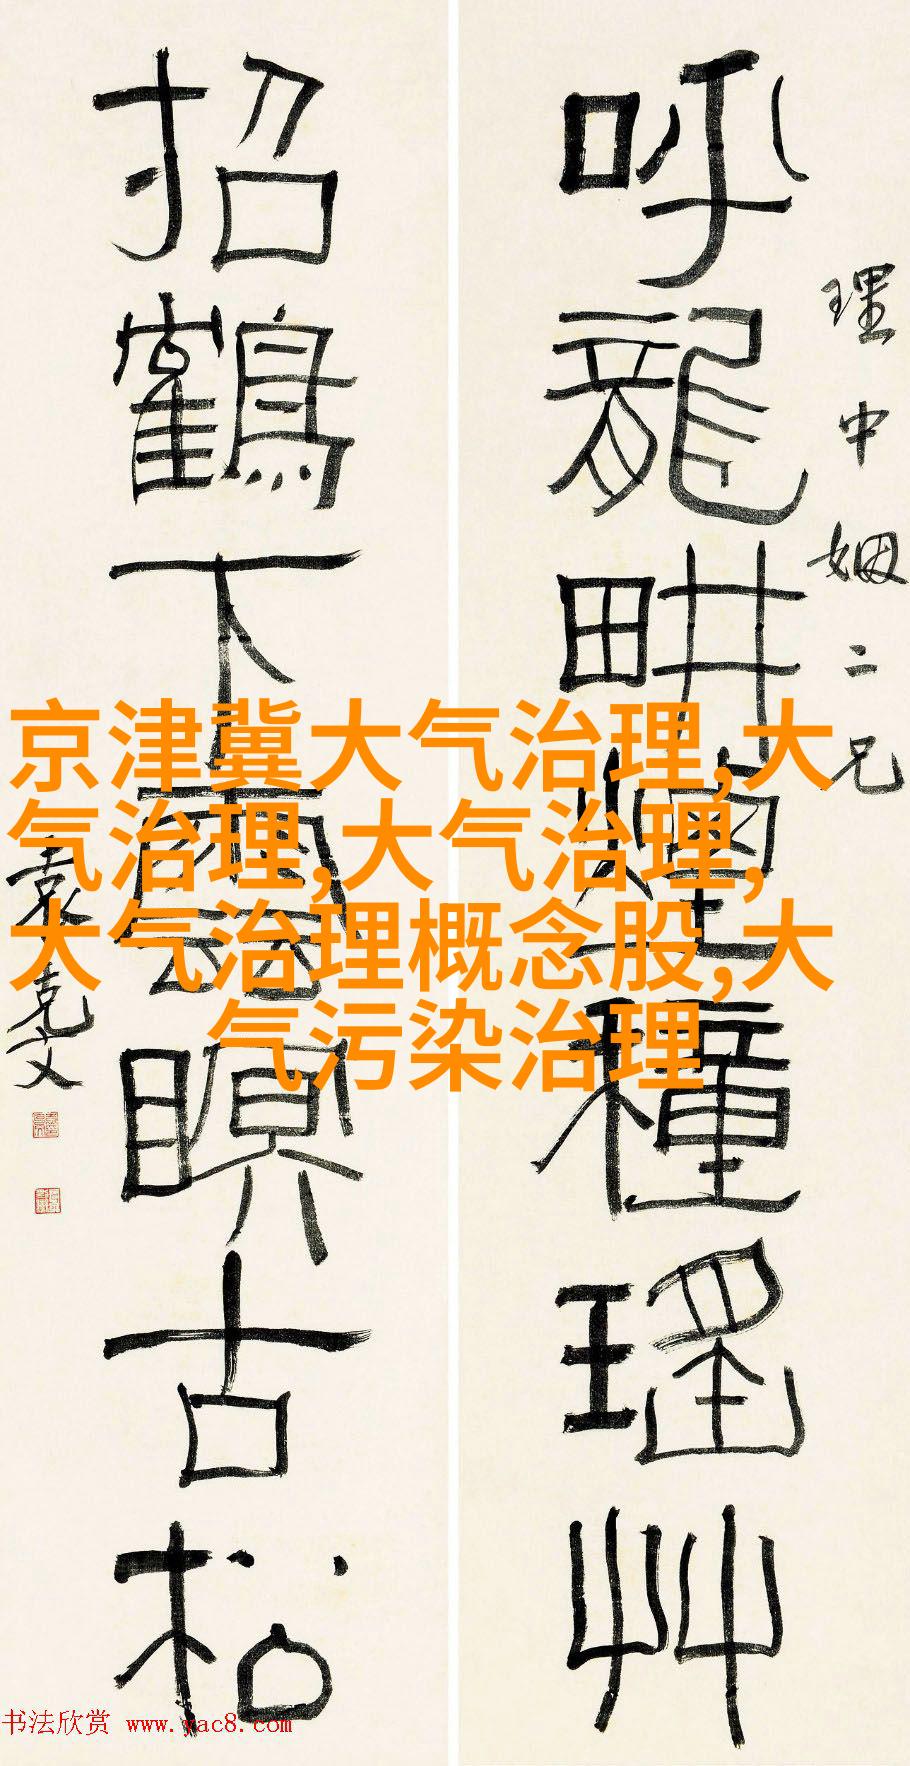 理中姻二兄
呼龍畊煙種瑤艸
招鶴下雲瞑古松
袁克文
京津冀大气治理,大
气治理,大气治理,
大气治理概念股,大
气污染治理
书法欣赏 www.yac8.com